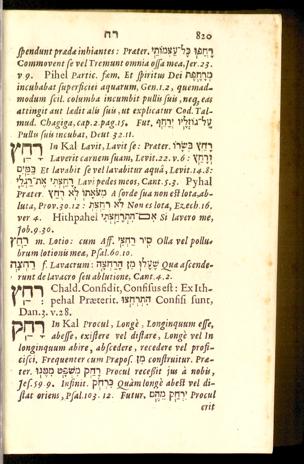 רח 820
spendunt præda inhiantes: Præter. רָחֲפוּ כָּל־עַצְמוֹתַי
Commoventse vel Tremunt omnia ossa mea, Jer. 23.
v 9. Pihel Partic. fæm. Et spiritus Dei מְרַחֶפֶת
incubabat superficiei aquarum, Gen. 1. 2, quemad-
modum scil. columba incumbit pullis suis, neq, eas
attingit aut lædit alis suis, ut explicatur Cod. Tal-
mud. Chagiga, cap. 2. pag. 15. Fut. עַל־גּוֹזָלָיו יְרַחֵף
Pullis suis incubat, Deut 32. 11.
רָחַץ In Kal Lavit, Lavit se: Præter. רָחַץ בְּשָׂרוֹ
Laverit carnem suam, Levit. 22. v. 6: וְרָחַץ
בַּמַּיִם Et lavabit se vel lavabitur aquâ, Levit. 14. 8:
רָחַצְתִּי אֶת־רַגְלַי Lavi pedes meos, Cant. 5. 3. Pyhal
Præter. מִצֹּאָתוֹ לֹא רֻחָץ A sorde sua non est lota, ab-
luta, Prov. 30. 12: לֹא רֻחַצְתְּ Non es lota, Ezech. 16.
ver 4. Hithpahel אִם־הִתְרָחַצְתִּי Si lavero me,
Job. 9. 30.
רַחַץ m. Lotio: cum Aff. סִיר רַחְצִי Olla vel pollu-
brum lotionis meæ, Psal. 60. 10.
רַחְצָה f. Lavacrum: שֶׁעָלוּ מִן הָרַחְצָה Quæ ascende-
runt de lavacro seu ablutione, Cant. 4. 2.
רְחַץ Chald. Confidit, Confisus est: Ex Ith-
pehal Præterit. הִתְרְחִצוּ Confisi sunt,
Dan. 3. v. 28.
רָחַק In Kal Procul, Longè, Longinquum esse,
abesse, existere vel distare, Longè vel In
longinquum abire, abscedere, recedere vel profi-
cisci, Frequenter cum Præpos. מִן construitur. Præ-
ter. רָחַק מִשְׁפָּט מִמֶּנּוּ Procul recessit jus à nobis,
Jes. 59. 9. Infinit. כִּרְחֹק Quàm longè abest vel di-
stat oriens, Psal. 103. 12. Futur. יִרְחַק מֵהֶם Procul
erit